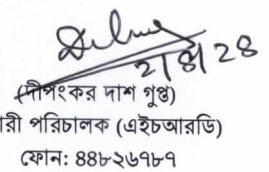 ২১৪১২৪
(দীপংকর দাশ গুপ্ত)
রী পরিচালক (এইচআরডি)
ফোন: ৪৪৮২৬৭৮৭